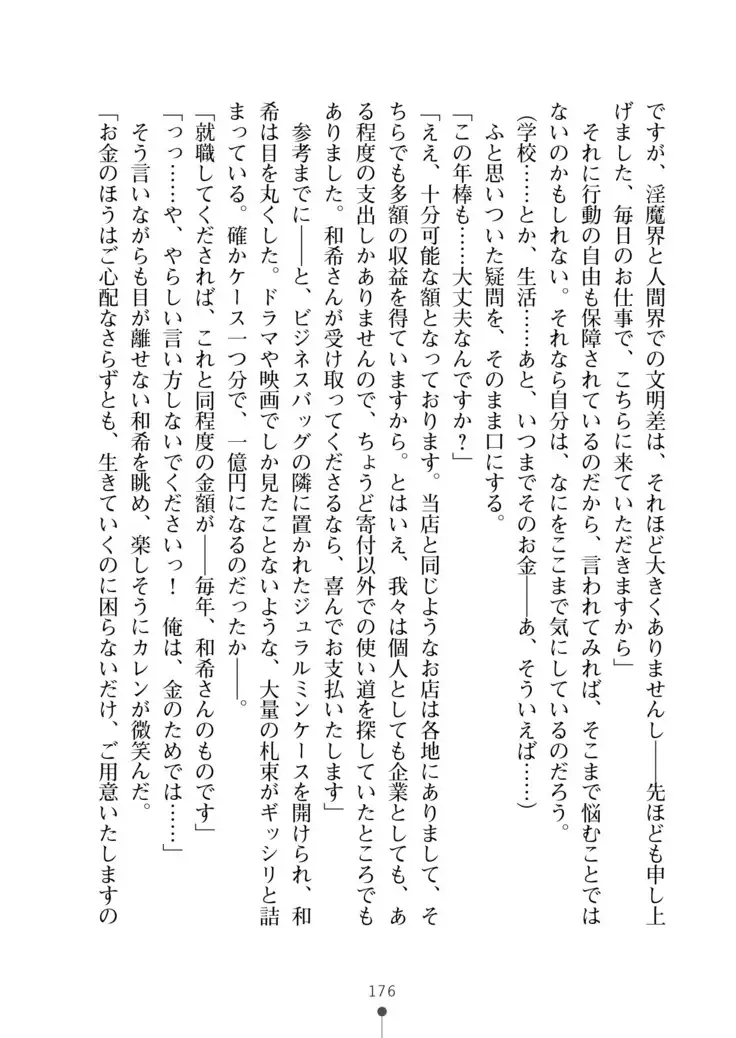 ですが、淫魔界と人間界での文明差は、それほど大きくありませんし――先ほども申し上
げました、毎日のお仕事で、こちらに来ていただきますから」
　それに行動の自由も保障されているのだから、言われてみれば、そこまで悩むことでは
ないのかもしれない。それなら自分は、なにをここまで気にしているのだろう。
（学校……とか、生活……あと、いつまでそのお金――あ、そういえば……）
　ふと思いついた疑問を、そのまま口にする。
「この年棒も……大丈夫なんですか？」
「ええ、十分可能な額となっております。当店と同じようなお店は各地にありまして、そ
ちらでも多額の収益を得ていますから。とはいえ、我々は個人としても企業としても、あ
る程度の支出しかありませんので、ちょうど寄付以外での使い道を探していたところでも
ありました。和希さんが受け取ってくださるなら、喜んでお支払いたします」
　参考までに――と、ビジネスバッグの隣に置かれたジュラルミンケースを開けられ、和
希は目を丸くした。ドラマや映画でしか見たことないような、大量の札束がギッシリと詰
まっている。確かケース一つ分で、一億円になるのだったか――。
「就職してくだされば、これと同程度の金額が――毎年、和希さんのものです」
「っっ……や、やらしい言い方しないでくださいっ！　俺は、金のためでは……」
　そう言いながらも目が離せない和希を眺め、楽しそうにカレンが微笑んだ。
「お金のほうはご心配なさらずとも、生きていくのに困らないだけ、ご用意いたしますの
176